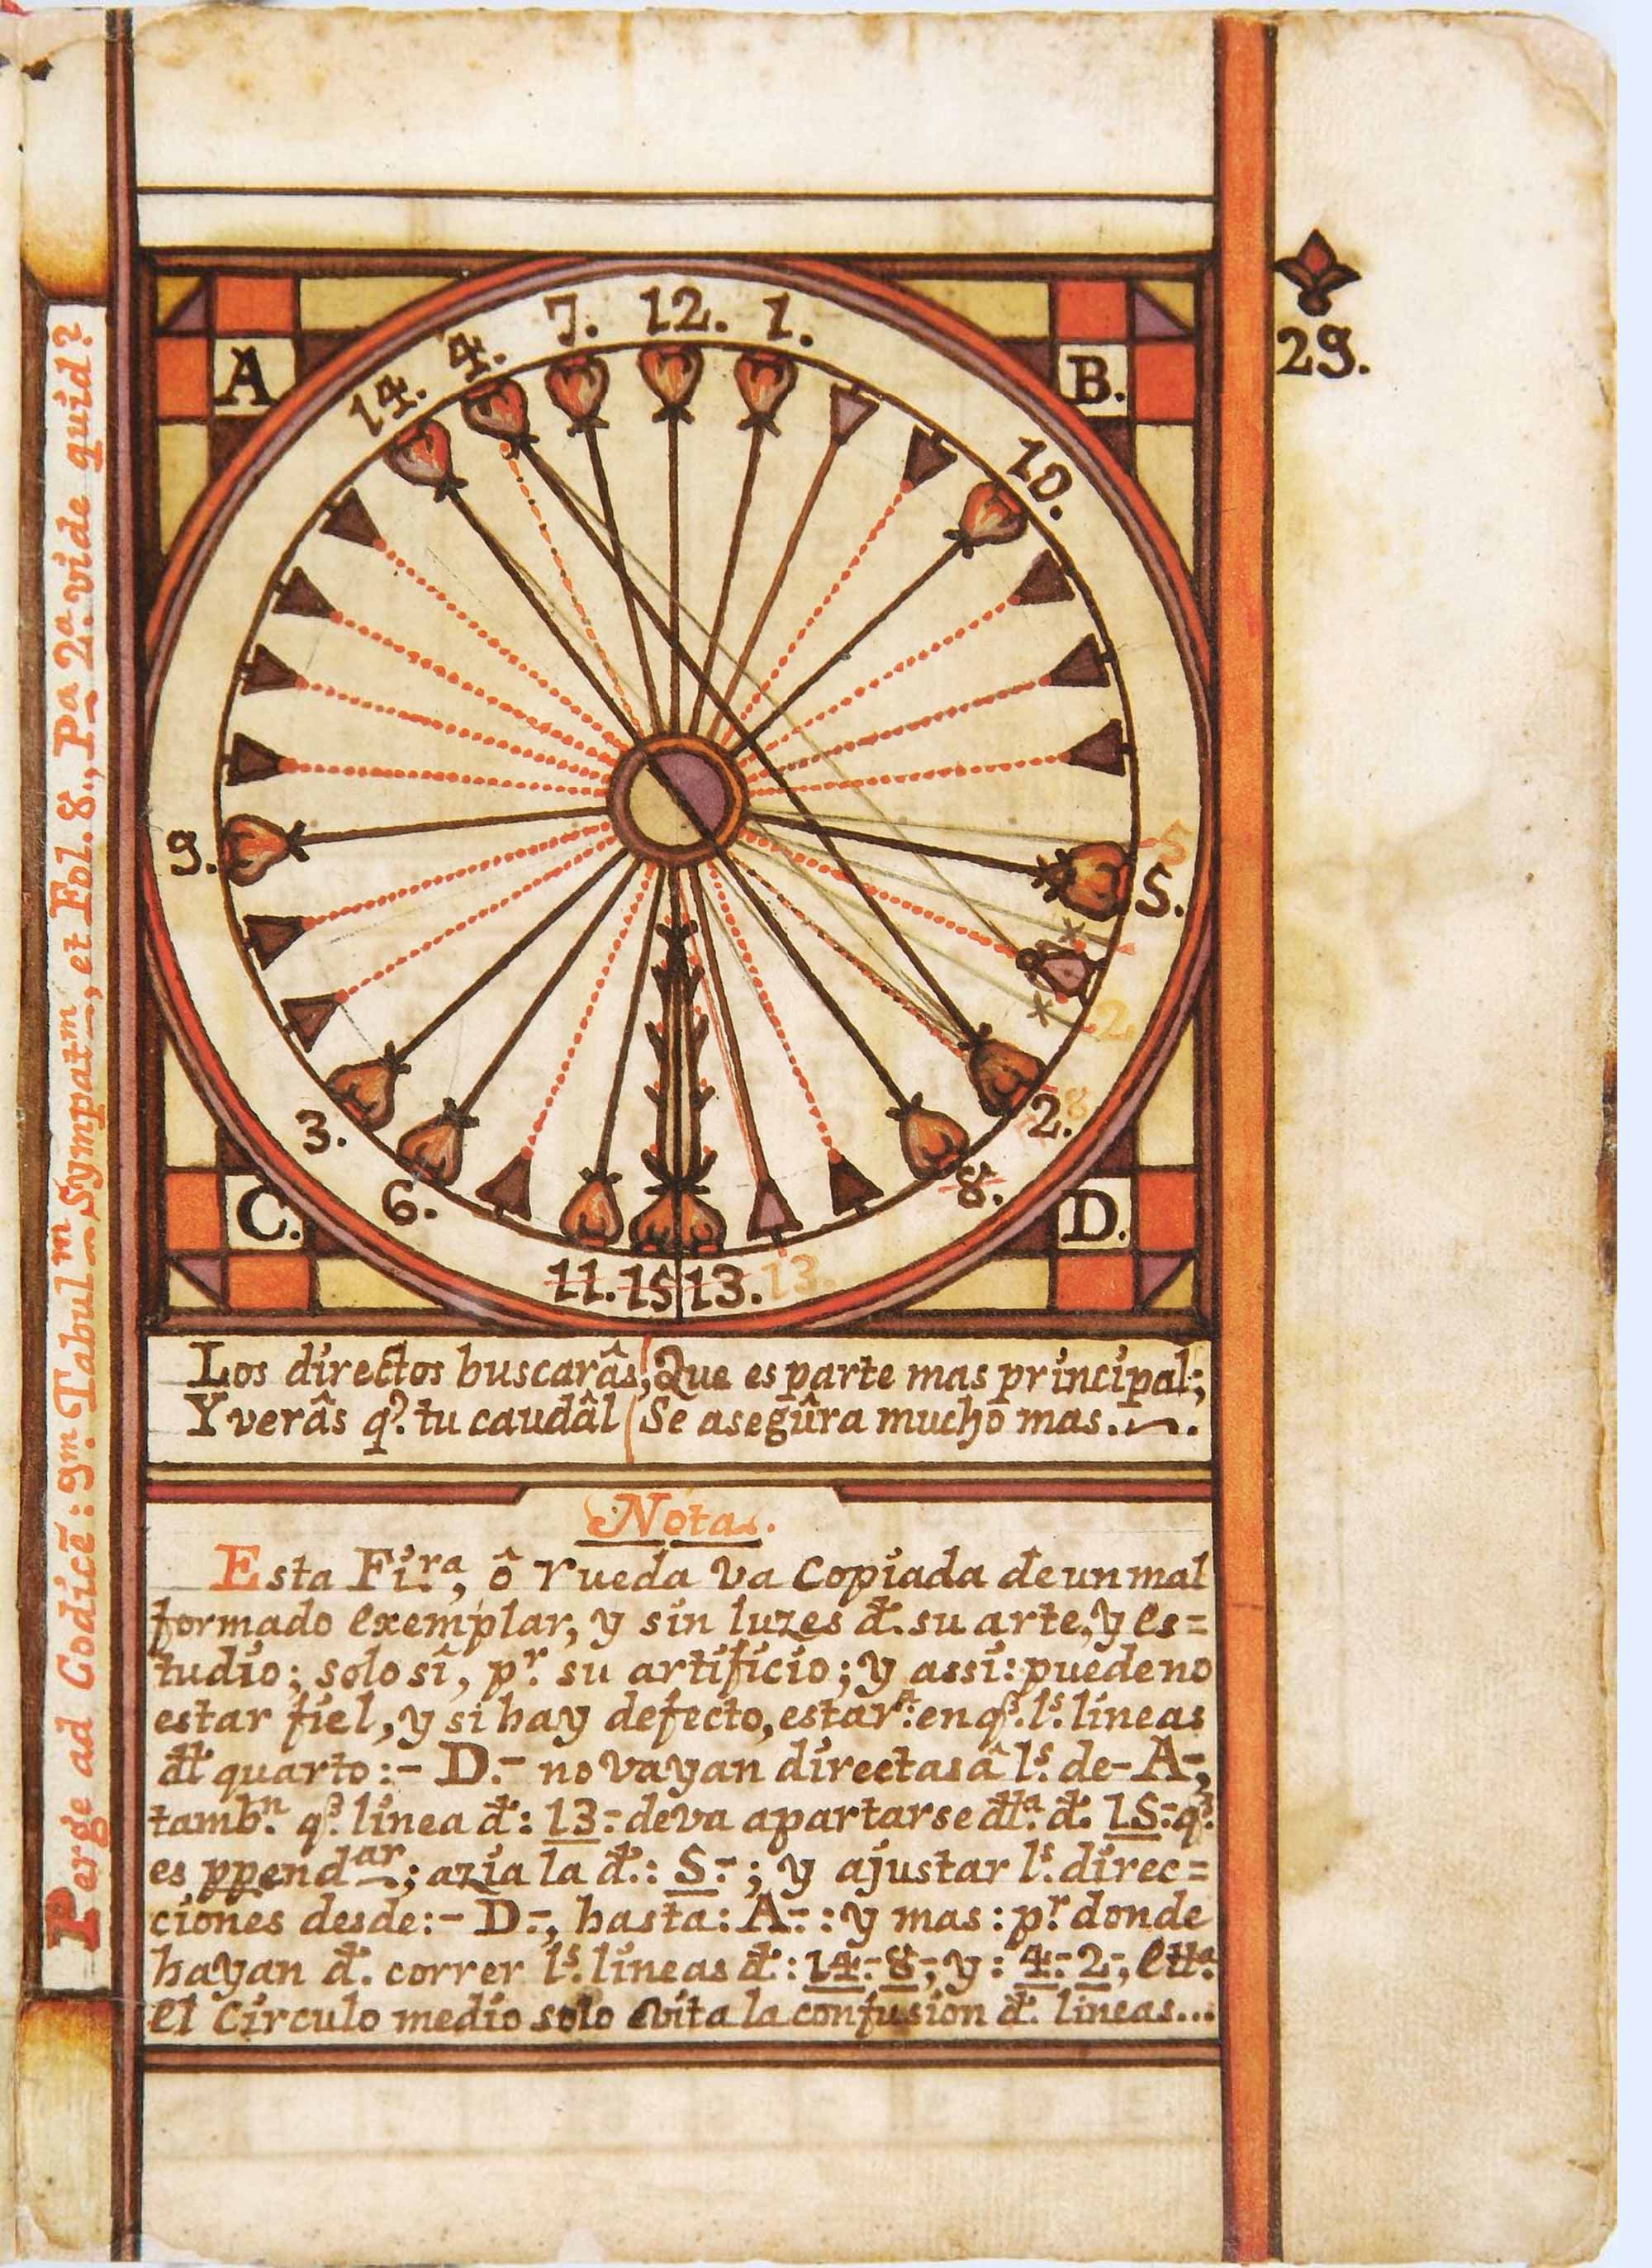 29.
A
B.
7. 12. 1.
4.
14.
10.
9.
5
5.
2
8
2.
3.
6.
8.
C.
D.
11. 15 13. 13.
Los directos buscarâs; Que es parte mas principal;
Y verâs q.̃ tu caudâl Se asegûra mucho mas.
Nota.
Esta Fi.ra, ô rueda va Copiada de un mal
formado exemplar, y sin luzes đ. su arte, y es=
tudio; solo sî, p.r su artificio; y assi: puede no
estar fiel, y si hay defecto, estar.a en q.̃ l.s lineas
đl quarto:- D.- no vayan directas â l.s de- A-;
tamb.n q.̃ linea đ: 13- deva apartarse đla đ. 15- q.̃
es ppend.ar; azia la đ.: 5-; y ajustar l.s direc=
ciones desde:- D-, hasta: A-: y mas: p.r donde
hayan đ. correr l.s lineas đ: 14- 8-, y: 4- 2-, ett.a
el Circulo medio solo evita la confusion đ. lineas...
Perge ad Codicẽ: gm. Tabulm Sympatm, et Fol. 8., Pa 2a vide quid?